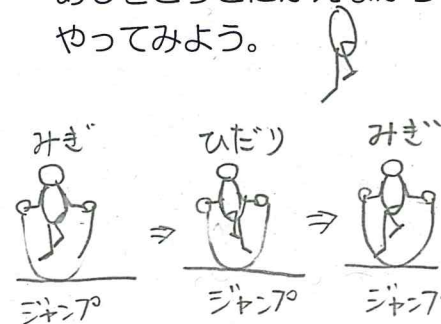 やってみよう。
みぎ ひだり みぎ
⇒ ⇒
ジャンプ ジャンプ ジャンプ